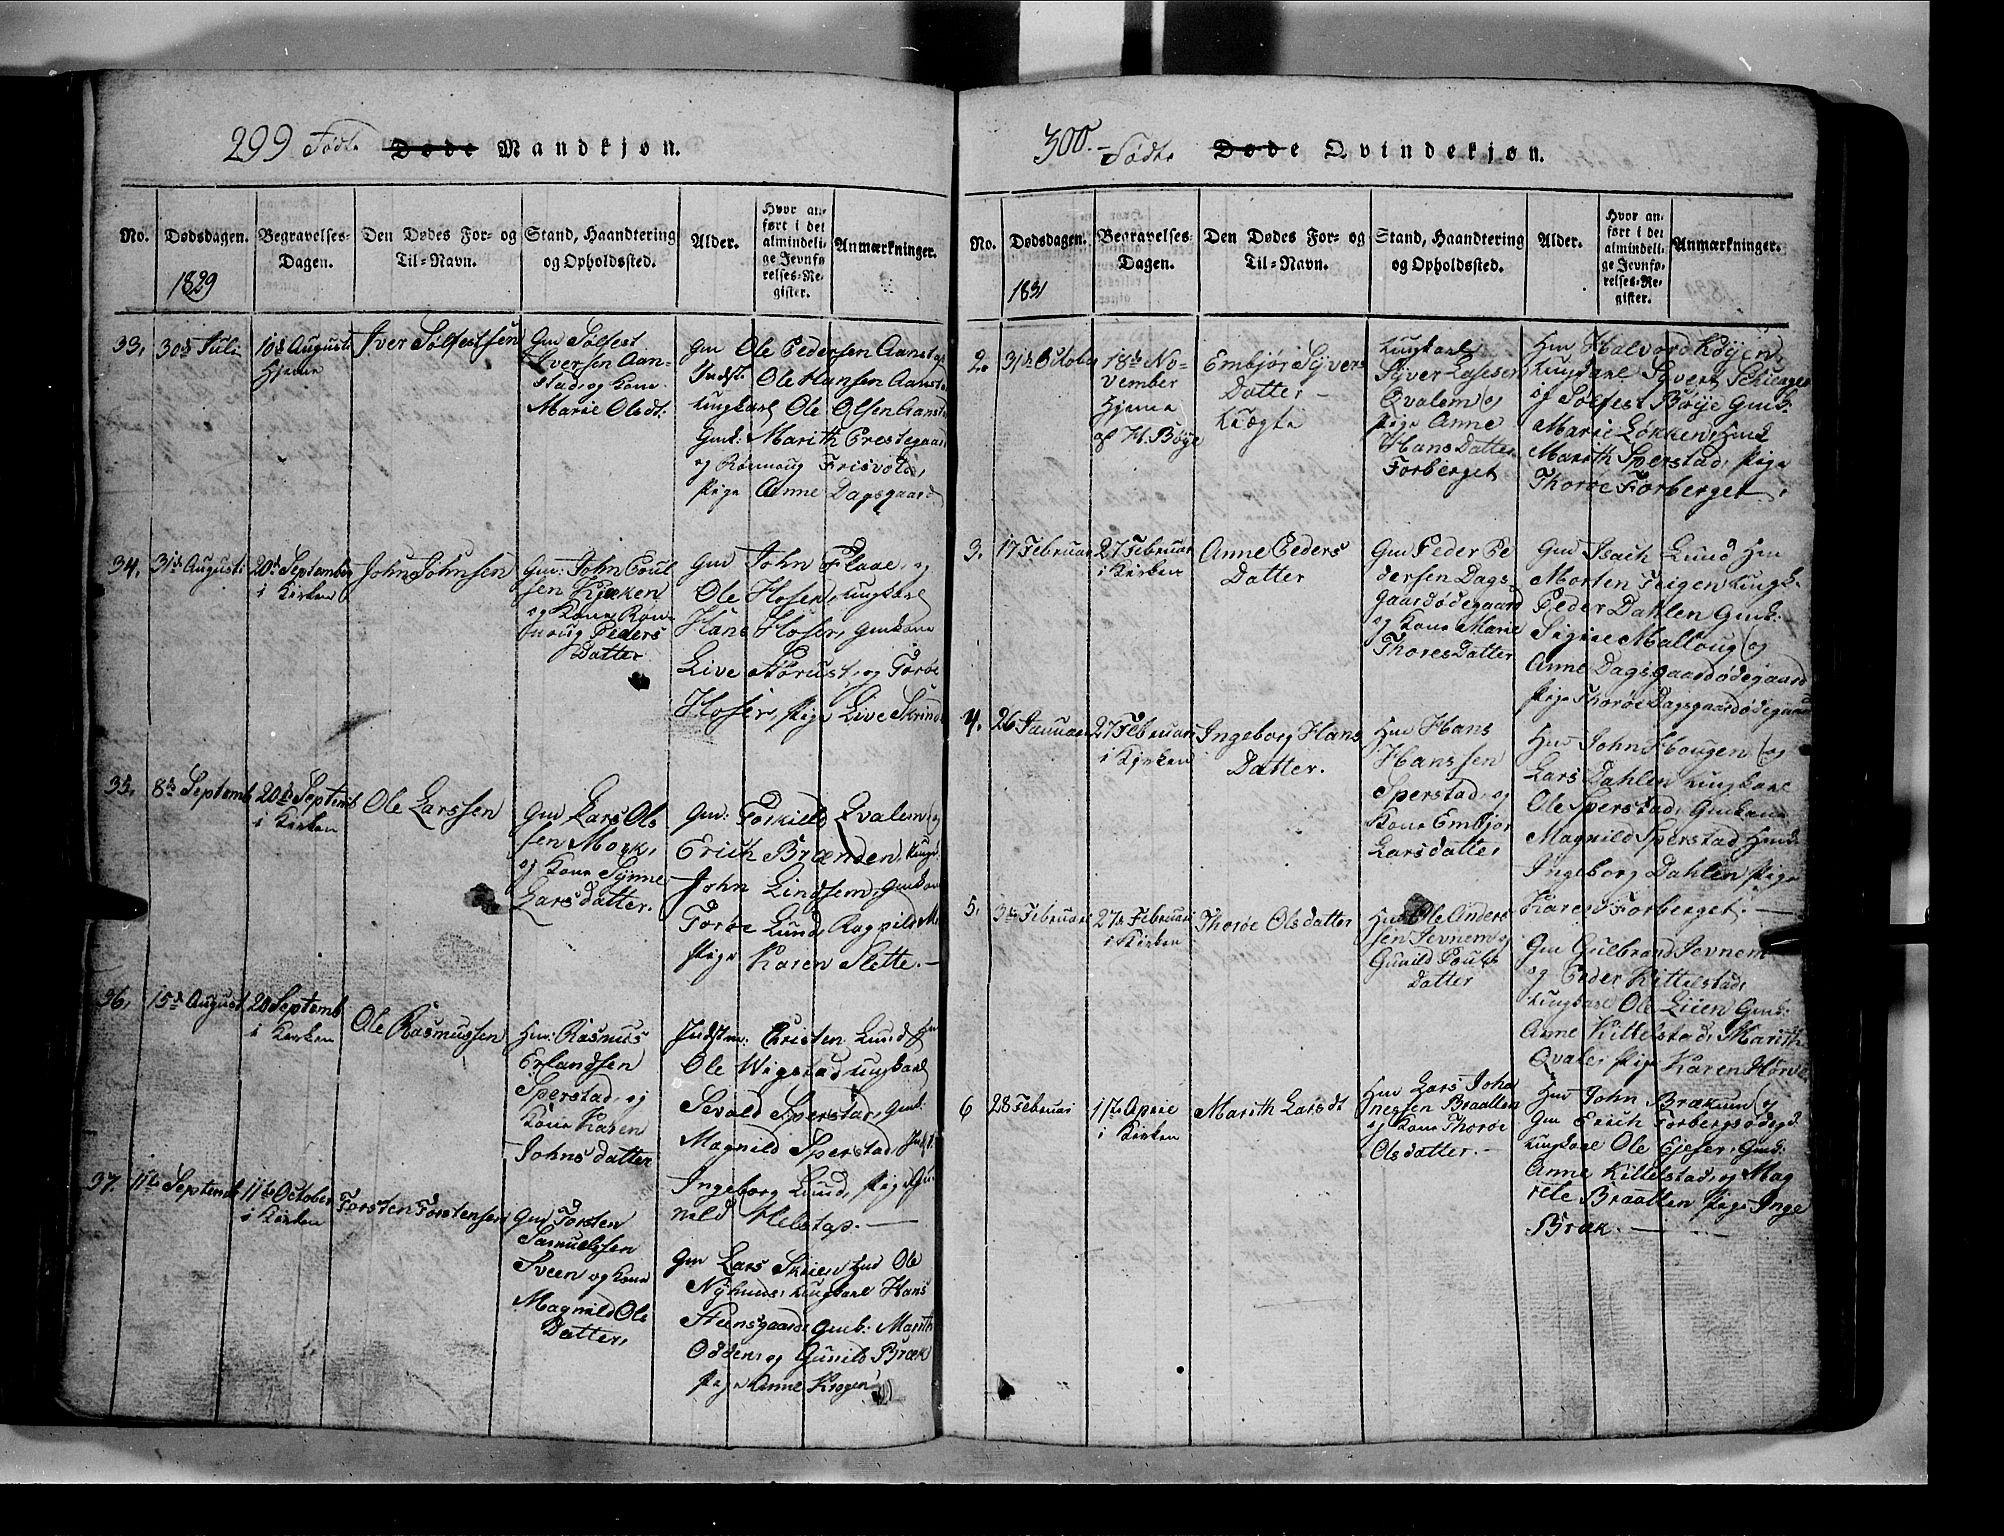 299 Fødte Døde Mandkjøn.
No. Dødsdagen. Begravelses-Dagen. Den Dødes For- og Til-Navn. Stand, Haandtering og Opholdssted. Alder. Hvor anført i det almindelige Jevnførelses-Register. Anmærkninger.
1829
33. 30d Juli
10d August
Hjeme
Iver Sølfestsen
Gm Sølfest
Iversen Aan-
stad, og Kone
Marie Olsdt.
Gm Ole Pedersen Aanstad
Indst. Ole Hansen Aansta
Ungkarl Ole Olsen Aansta
Gmk: Marith Prestegaard
og Rønnoug Frisvold,
Pige Anne Dagsgaard
34. 31d August
20d September
i Kirken
John Johnsen
Gm: John Poul
sen Kjæken
og Kone Røn
noug Peders
Datter
Gm John Flaae, og
Ole Hosen, Ungkarl
Hans Hosen, Gmkone
Live Størust, og Torøe
Hosen, Pige Live Skrinde
35. 8d Septemb
20d Septemb
i Kirken
Ole Larssen
Gm Lars Ols
sen Mork,
og Kone Synne
Larsdatter.
Gm: Torkild Qvalem og
Erich Brænden, Ungk
John Lindsem, Gmkone
Torøe Lund, Ragnild M
Pige Karen Slette. —
36. 15d August
20 Septemb
i Kirken
Ole Rasmussen
Hm: Rasmus
Erlandsen
Sperstad, og
Kone Karen
Johnsdatter
Indstm: Christen Lund Hm
Ole Wigstad Ungkarl
Sevald Sperstad, Gmk:
Magnild Sperstad, Indst.
Ingeborg Lund, Pige Gu
nild Helstad. —
37. 11te Septemb
11te October
i Kirken
Torsten Torstensen
Gm Torsten
Samuelssen
Sveen og Kone
Magnild Ols
Datter,
Gm Lars Skien Hm Ole
Nyhuus, Ungkarl Hans
Steensgaard, Gmk: Marith
Odden, og Gunild Bræk
Pige Anne Krogen
300. Fødte Døde Qvindekjøn.
No. Dødsdagen. Begravelses-Dagen. Den Dødes For- og Til-Navn. Stand, Haandtering og Opholdssted. Alder. Hvor anført i det almindelige Jevnførelses-Register. Anmærkninger.
1831
2. 31te October
18de No-
vember
Hjeme
af H. Bøye
Embjør Syvers
Datter —
Uægte
Ungkarl
Syver Larssen
Qvalem og
Pige Anne
Hans Datter
Forberget
Hm Halvord Køyen,
Ungkarl Syvert Schienger
og Solfest Bøye Gmk:
Marie Løkken, Hmk
Marith Sperstad, Pige
Thorøe Forberget,
3. 17 Februar
27 Februar
i Kirken
Anne Peders
Datter
Gm Peder Pe
dersen Dags-
gaardødegaard
og Kone Marie
Thores Datter
Gm Isach Lund Hm
Morten Teigen, Ungk
Peder Dahlen Gmk:
Signe Malloug og
Anne Dagsgaardødegaard
Pige Thorøe Dagsgaardødegaard
4. 26 Januar
27 Februar
i Kirken
Ingeborg Hans
Datter.
Hm Hans
Hanssen
Sperstad, og
Kone Embjør
Larsdatter,
Hm John Hougen og
Lars Dahlen Ungkarl
Ole Sperstad, Gmkone
Magnild Sperstad, Hmk
Ingeborg Dahlen Pige
Karen Forberget. —
5. 3d Februar
27d Februar
i Kirken
Thorøe Olsdatter
Hm Ole Anders
sen Jevnem og
Gunild Pouls
Datter
Gm Gulbrand Jevnem
og Peder Kittelstad,
Ungkarl Ole Liien Gmk:
Anne Kittelstad, Marith
Qvale, Pige Karen Horve
6 28 Februar
1te April
i Kirken
Marith Larsdt
Hm Lars Joha
nessen Braatten
og Kone Thorøe
Olsdatter. —
Hm John Brækum og
Gm Erich Forbergsødegd
Ungkarl Ole Ejefer, Gmk:
Anne Kittelstad, og Mag
rete Braatten Pige Inge
Bræk. —